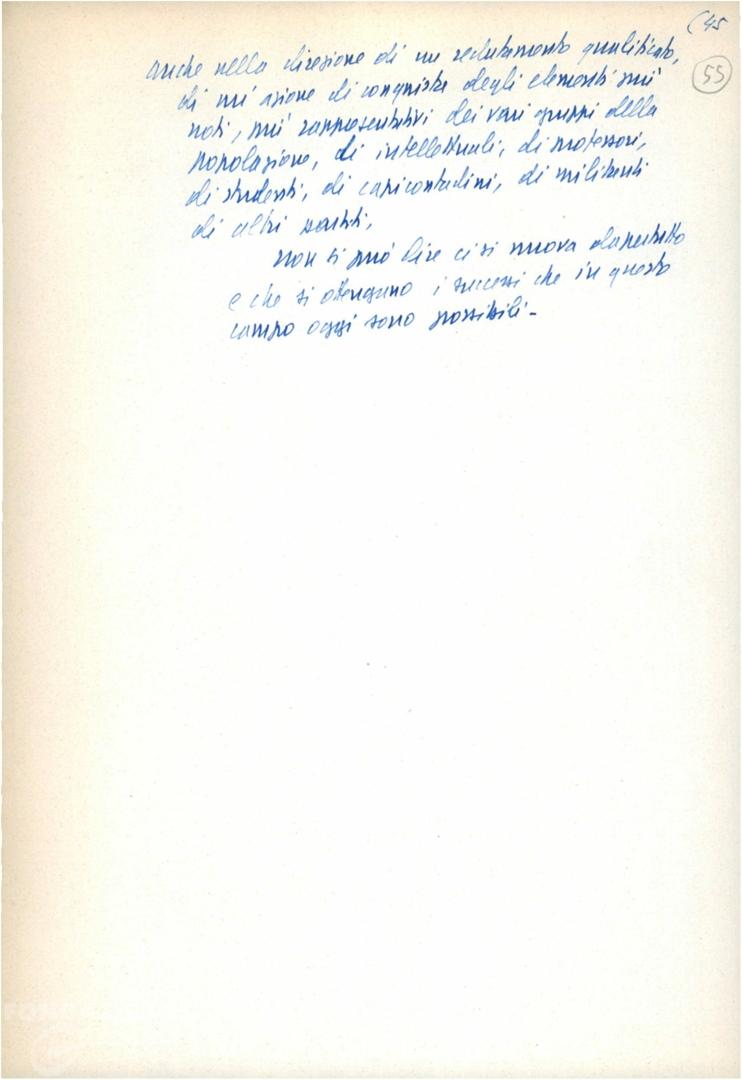 (45
55
anche nella direzione di un reclutamento qualificato,
di un'azione di conquista degli elementi più
noti, più rappresentativi dei vari gruppi della
popolazione, di intellettuali, di professori,
di studenti, di capicontadini, di militanti
di altri partiti,
non si può dire ci si muova dappertutto
e che si ottengano i successi che in questo
campo oggi sono possibili -